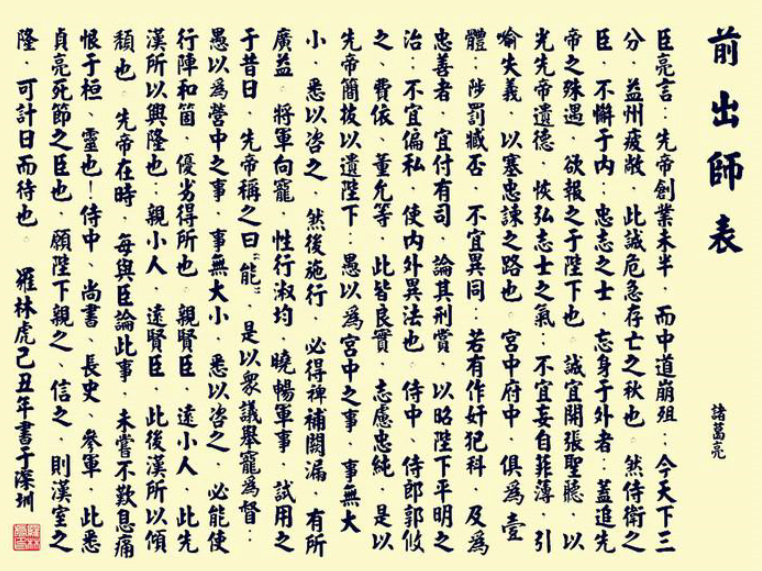 前出師表
諸葛亮
臣亮言：先帝創業未半，而中道崩殂；今天下三
分，益州疲敝，此誠危急存亡之秋也。然侍衛之
臣，不懈于內；忠志之士，忘身于外者：蓋追先
帝之殊遇，欲報之于陛下也。誠宜開張聖聽，以
光先帝遺德，恢弘志士之氣；不宜妄自菲薄，引
喻失義，以塞忠諫之路也。宮中府中，俱為壹
體；陟罰臧否，不宜異同：若有作奸犯科，及為
忠善者，宜付有司，論其刑賞，以昭陛下平明之
治；不宜偏私，使內外異法也。侍中、侍郎郭攸
之、費依、董允等，此皆良實，志慮忠純，是以
先帝簡拔以遺陛下：愚以為宮中之事，事無大
小，悉以咨之，然後施行，必得裨補闕漏，有所
廣益。將軍向寵，性行淑均，曉暢軍事，試用之
于昔日，先帝稱之曰“能”，是以眾議舉寵為督：
愚以為營中之事，事無大小，悉以咨之，必能使
行陣和箇，優劣得所也。親賢臣，遠小人，此先
漢所以興隆也；親小人，遠賢臣，此後漢所以傾
頹也。先帝在時，每與臣論此事，未嘗不歎息痛
恨于桓、靈也！侍中、尚書、長史、參軍，此悉
貞亮死節之臣也，願陛下親之、信之，則漢室之
隆，可計日而待也。羅林虎己丑年書于深圳